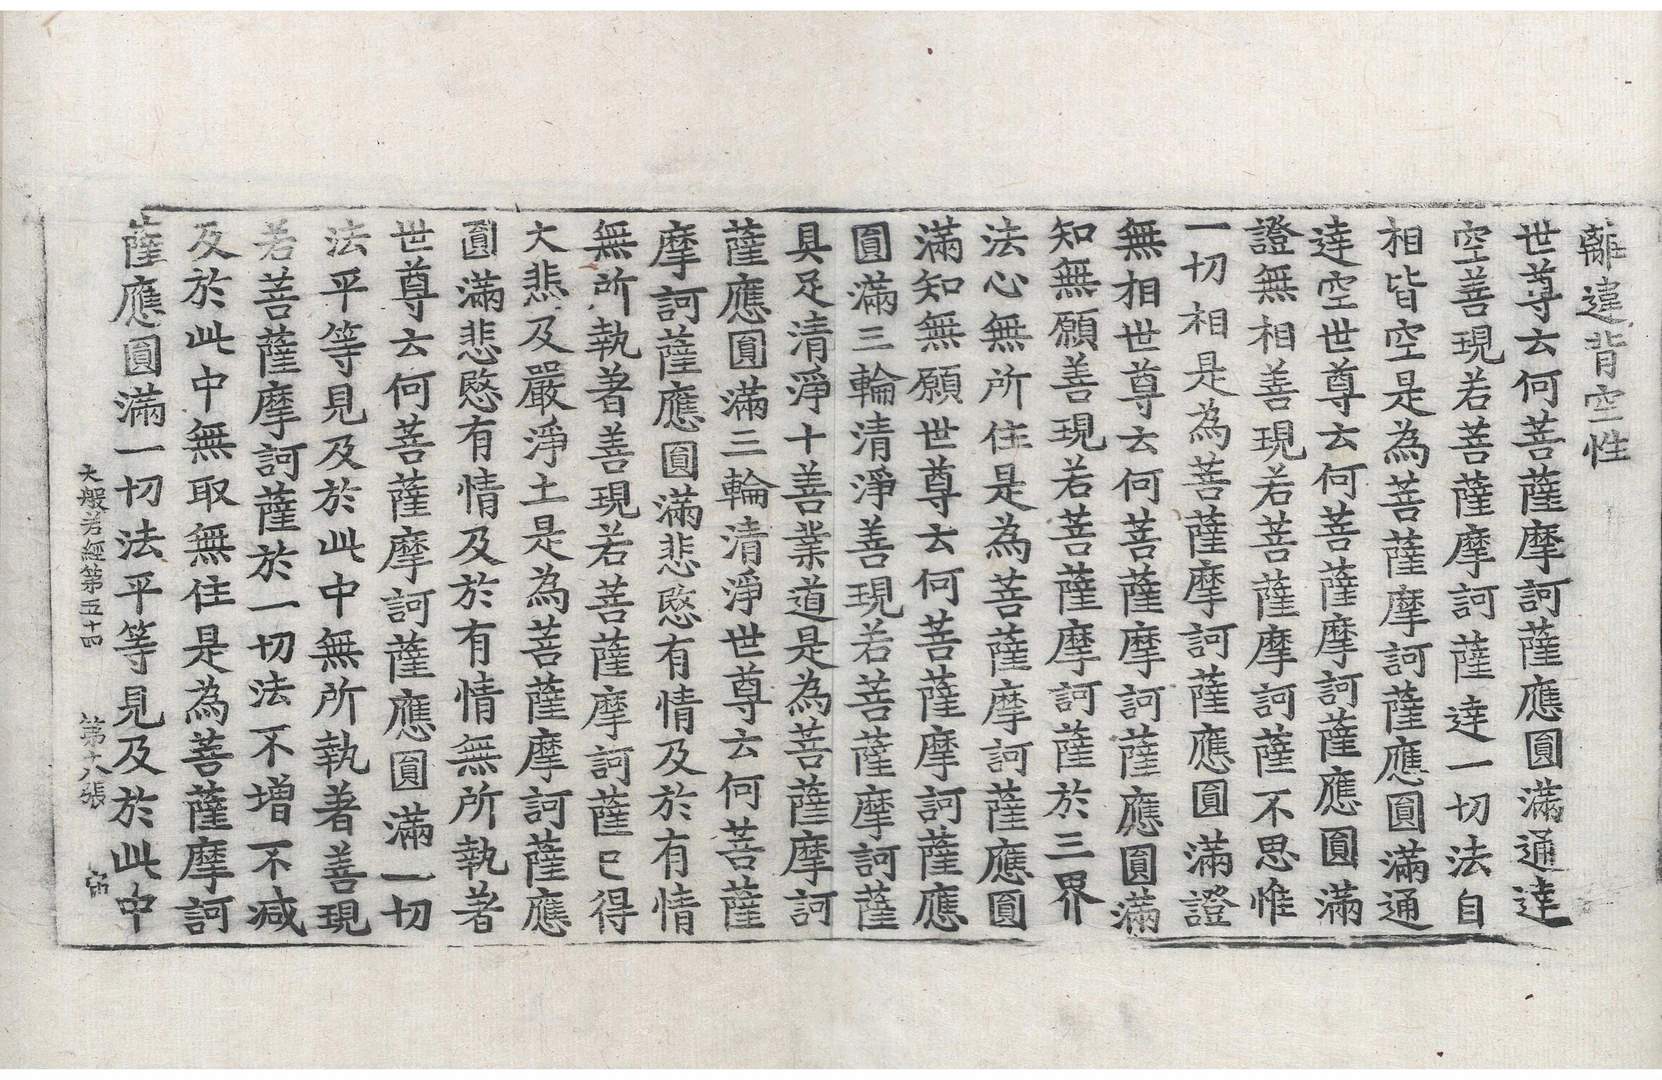 離違背空性
世尊云何菩薩摩訶薩應圓滿通達
空善現若菩薩摩訶薩達一切法自
相皆空是為菩薩摩訶薩應圓滿通
達空世尊云何菩薩摩訶薩應圓滿
證無相善現若菩薩摩訶薩不思惟
一切相是為菩薩摩訶薩應圓滿證
無相世尊云何菩薩摩訶薩應圓滿
知無願善現若菩薩摩訶薩於三界
法心無所住是為菩薩摩訶薩應圓
滿知無願世尊云何菩薩摩訶薩應
圓滿三輪清淨善現若菩薩摩訶薩
具足清淨十善業道是為菩薩摩訶
薩應圓滿三輪清淨世尊云何菩薩
摩訶薩應圓滿悲愍有情及於有情
無所執著善現若菩薩摩訶薩已得
大悲及嚴淨土是為菩薩摩訶薩應
圓滿悲愍有情及於有情無所執著
世尊云何菩薩摩訶薩應圓滿一切
法平等見及於此中無所執著善現
若菩薩摩訶薩於一切法不增不減
及於此中無取無住是為菩薩摩訶
薩應圓滿一切法平等見及於此中
大般若經第五十四 第十八張 宙